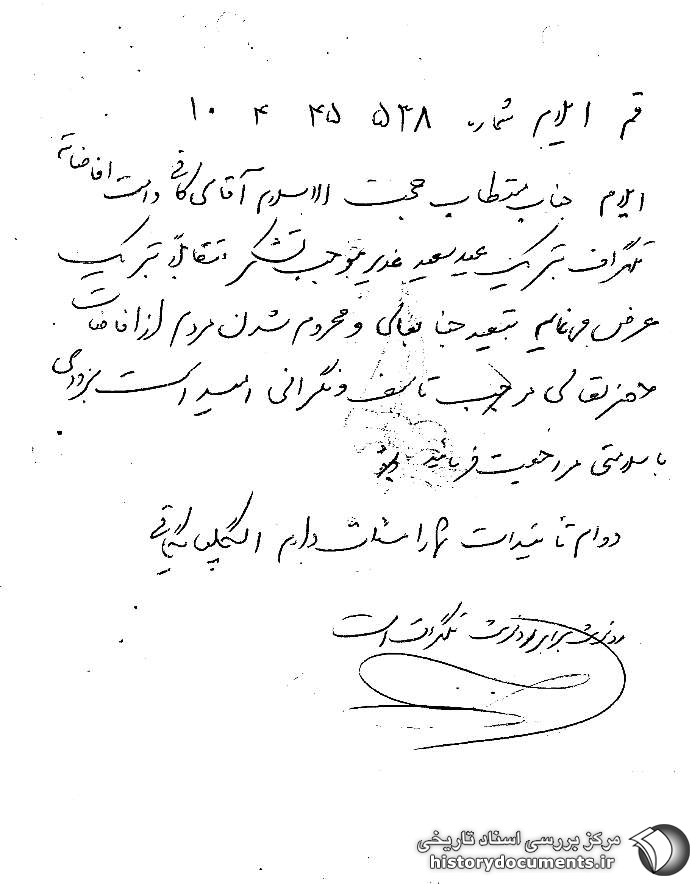 قم ایلام شماره ۵۳۸ ۴۵ ۴ ۱۰
ایلام جناب مستطاب حجت الاسلام آقای کافی دامت افاضاته
تلگراف تبریک عید سعید غدیر موجب تشکر متقابلاً تبریک
عرض می‌نمایم تبعید جنابعالی و محروم شدن مردم از افاضات
جنابعالی موجب تاسف و نگرانی امید است بزودی
با سلامتی مراجعت فرمائید
دوام تأئیدات را مسئلت دارم الگلپایگانی
رونوشت برابر رونوشت تلگراف است
مرکز بررسی اسناد تاریخی
historydocuments.ir